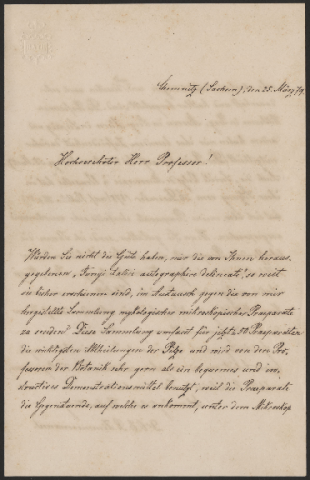 Chemnitz (Sachsen), den 25. März 79.
Hochverehrter Herr Professor!
Würden Sie nicht die Güte haben, mir die von Ihnen heraus-
gegebenen „Fungi italici autographice delineati", so weit
sie bisher erschienen sind, im Austausch gegen die von mir
hergestellte Sammlung mykologischer mikroskopischer Praeparate
zu senden? Diese Sammlung umfasst für jetzt in 50 Praeparaten
die wichtigsten Abtheilungen der Pilze und wird von den Pro-
fessoren der Botanik sehr gern als ein bequemes und in-
structives Demonstrationsmittel benutzt, weil die Praeparate
die Gegenstände, auf welche es ankommt, unter dem Mikroskop